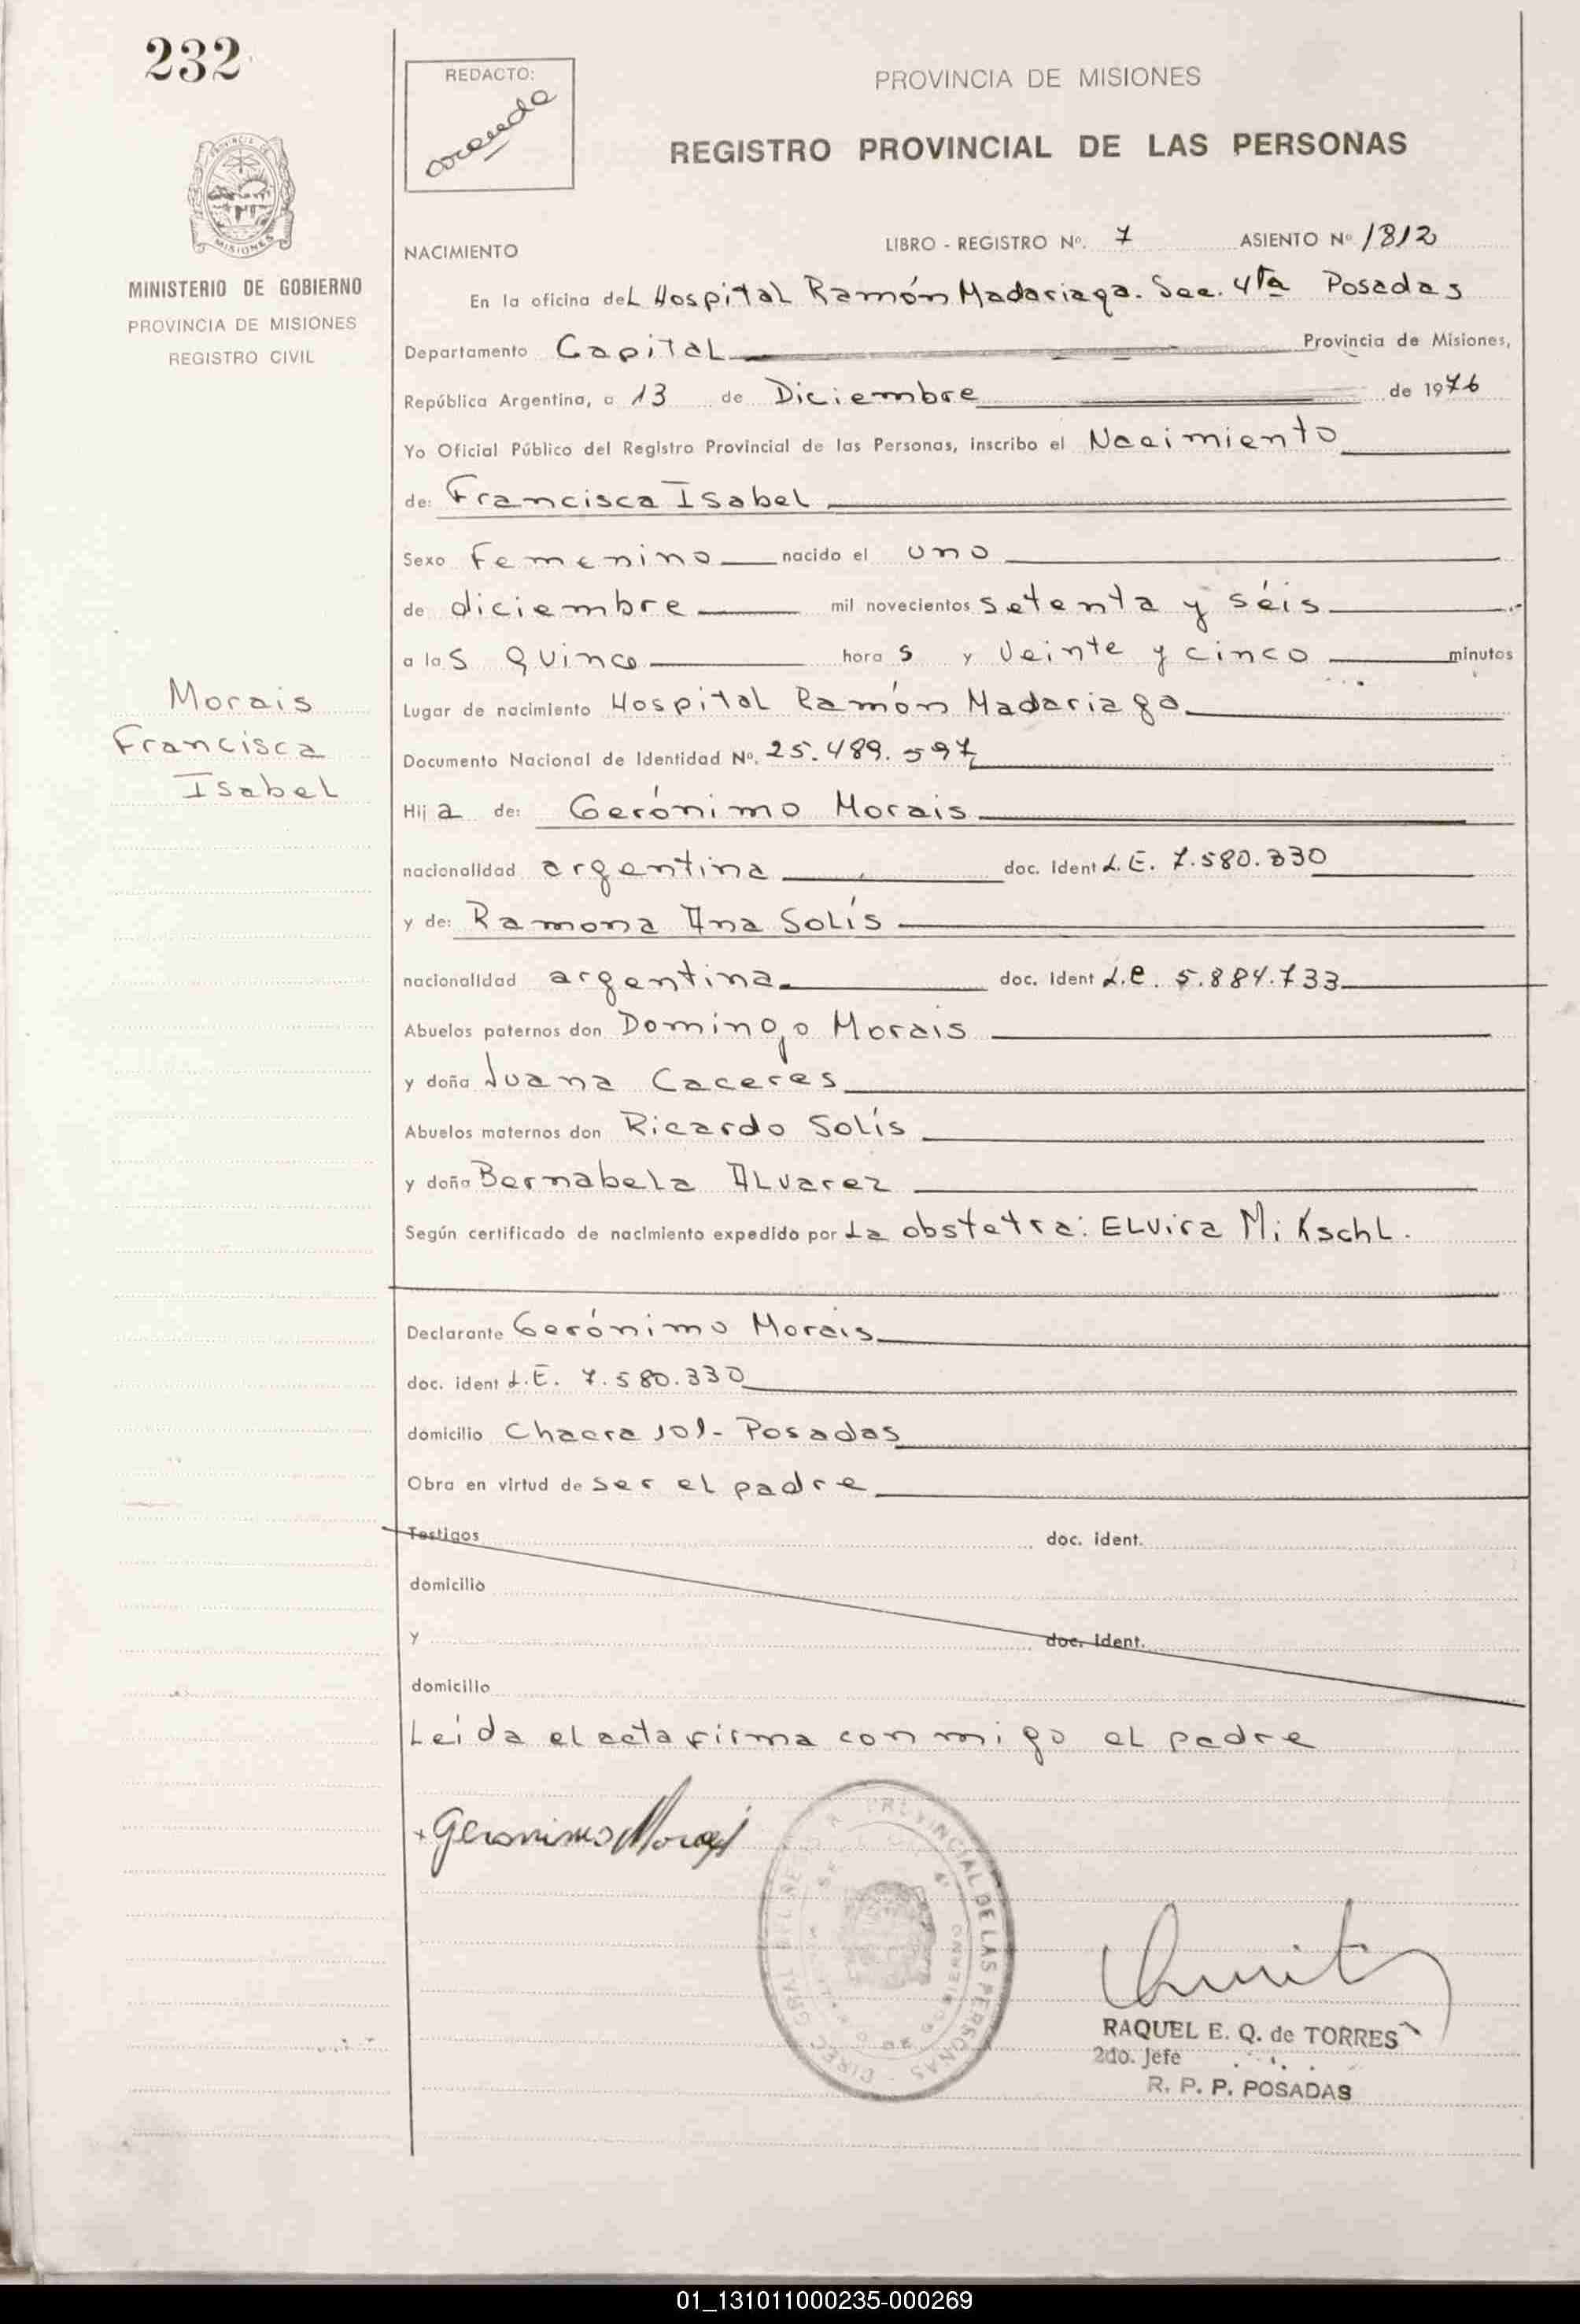 232
REDACTO:
PROVINCIA DE MISIONES
REGISTRO PROVINCIAL DE LAS PERSONAS
MISIONES
MINISTERIO DE GOBIERNO
PROVINCIA DE MISIONES
REGISTRO CIVIL
NACIMIENTO LIBRO - REGISTRO Nº. 7 ASIENTO Nº 1812
En la oficina deL Hospital Ramón Madariaga. Sec. 4ta Posadas
Departamento Capital Provincia de Misiones,
República Argentina, a 13 de Diciembre de 1976
Yo Oficial Público del Registro Provincial de las Personas, inscribo el Nacimiento
de: Francisca Isabel
Sexo Femenino nacido el uno
de diciembre mil novecientos setenta y séis
a las quince horas y veinte y cinco minutos
Morais
Francisca
Isabel
Lugar de nacimiento Hospital Ramón Madariaga
Documento Nacional de Identidad Nº. 25.489.597
Hija de: Gerónimo Morais
nacionalidad argentina doc. Ident L.E. 7.580.330
y de: Ramona Ana Solís
nacionalidad argentina doc. Ident L.e. 5.884.733
Abuelos paternos don Domingo Morais
y doña Juana Caceres
Abuelos maternos don Ricardo Solís
y doña Bernabela Alvarez
Según certificado de nacimiento expedido por La obstetra: Elvira Mikschl.
Declarante Gerónimo Morais
doc. ident L.E. 7.580.330
domicilio Chacra 101- Posadas
Obra en virtud de ser el padre
Testigos doc. ident.
domicilio
y doc. ident.
domicilio
Leída el acta firma con migo el padre
+ Geronimo Morais
DIREC. GRAL. PROVINCIAL DE LAS PERSONAS
RAQUEL E. Q. de TORRES
2do. Jefe
R. P. P. POSADAS
01_131011000235-000269